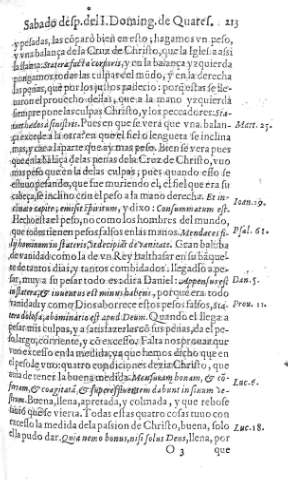 Sabado desp. del I. Doming. de Quares. 213
y pesadas, las cõparò bien en esto; hagamos vn peso,
y vna balança de la Cruz de Christo, que la Iglesia assi
la llama: Statera facta corporis, y en la balança yzquierda
pongamos todas las culpas del mũdo, y en la derecha
las penas, que por los justos padecio: porque estas se lle-
uaron el prouecho dellas, que a la mano yzquierdà
siempre pone las culpas Christo, y los peccadores: Sta-
tuet hædos à sinistris. Pues en que se vera que vna balan-
ça excede a la otra? en que el fiel o lengueta se inclina
mas, y cae a la parte que ay mas peso. Bien se vera pues
que en la balãça de las penas de la Cruz de Christo, vuo
mas peso que en la de las culpas; pues quando esso se
estuuo pesando, que fue muriendo el, el fiel que era su
cabeça, se inclino con el peso a la mano derecha. Et in-
clinato capite, emisit spiritum, y dixo: Consummatum est.
Hecho esta el peso, no como los hombres del mundo,
que todos tienen pesos falsos en las manos. Mendaces fi-
lij hominum in stateris, vt decipiāt de vanitate. Gran balāça
de vanidad como la de vn Rey Balthasar en su bãque-
te de tantos dias, y tantos combidados. llegado a pe-
sar, muy a su pesar todo esso diria Daniel: Appensus est
in statera, & inuentus est minus habens, porque era todo
vanidad y como Dios aborrece estos pesos falsos, Sta-
tera dolosa, abominatio est apud Deum. Quando el llega a
pesar mis culpas, y a satisfazerlas cõ sus penas, da el pe-
so largo, corriente, y cõ excesso. Falta nos prouar que
vuo excesso en la medida, ya que hemos dicho que en
el peso le vuo: quatro condiciones dezia Christo, que
auia de tener la buena medida. Mensuram bonam, & cō-
fertam, & coagitatā, & supereffluentem dabunt in sinum ve-
strum. Buena, llena, apretada, y colmada, y que rebose
hasta que se vierta. Todas estas quatro cosas tuuo con
excesso la medida de la passion de Christo, buena, solo
ella pudo dar. Quia nemo bonus, nisi solus Deus, llena, por
O 3 que
Matt. 25.
Ioan. 19.
Psal. 61.
Dan. 5.
Prou. 11.
Luc. 6.
Luc. 18.